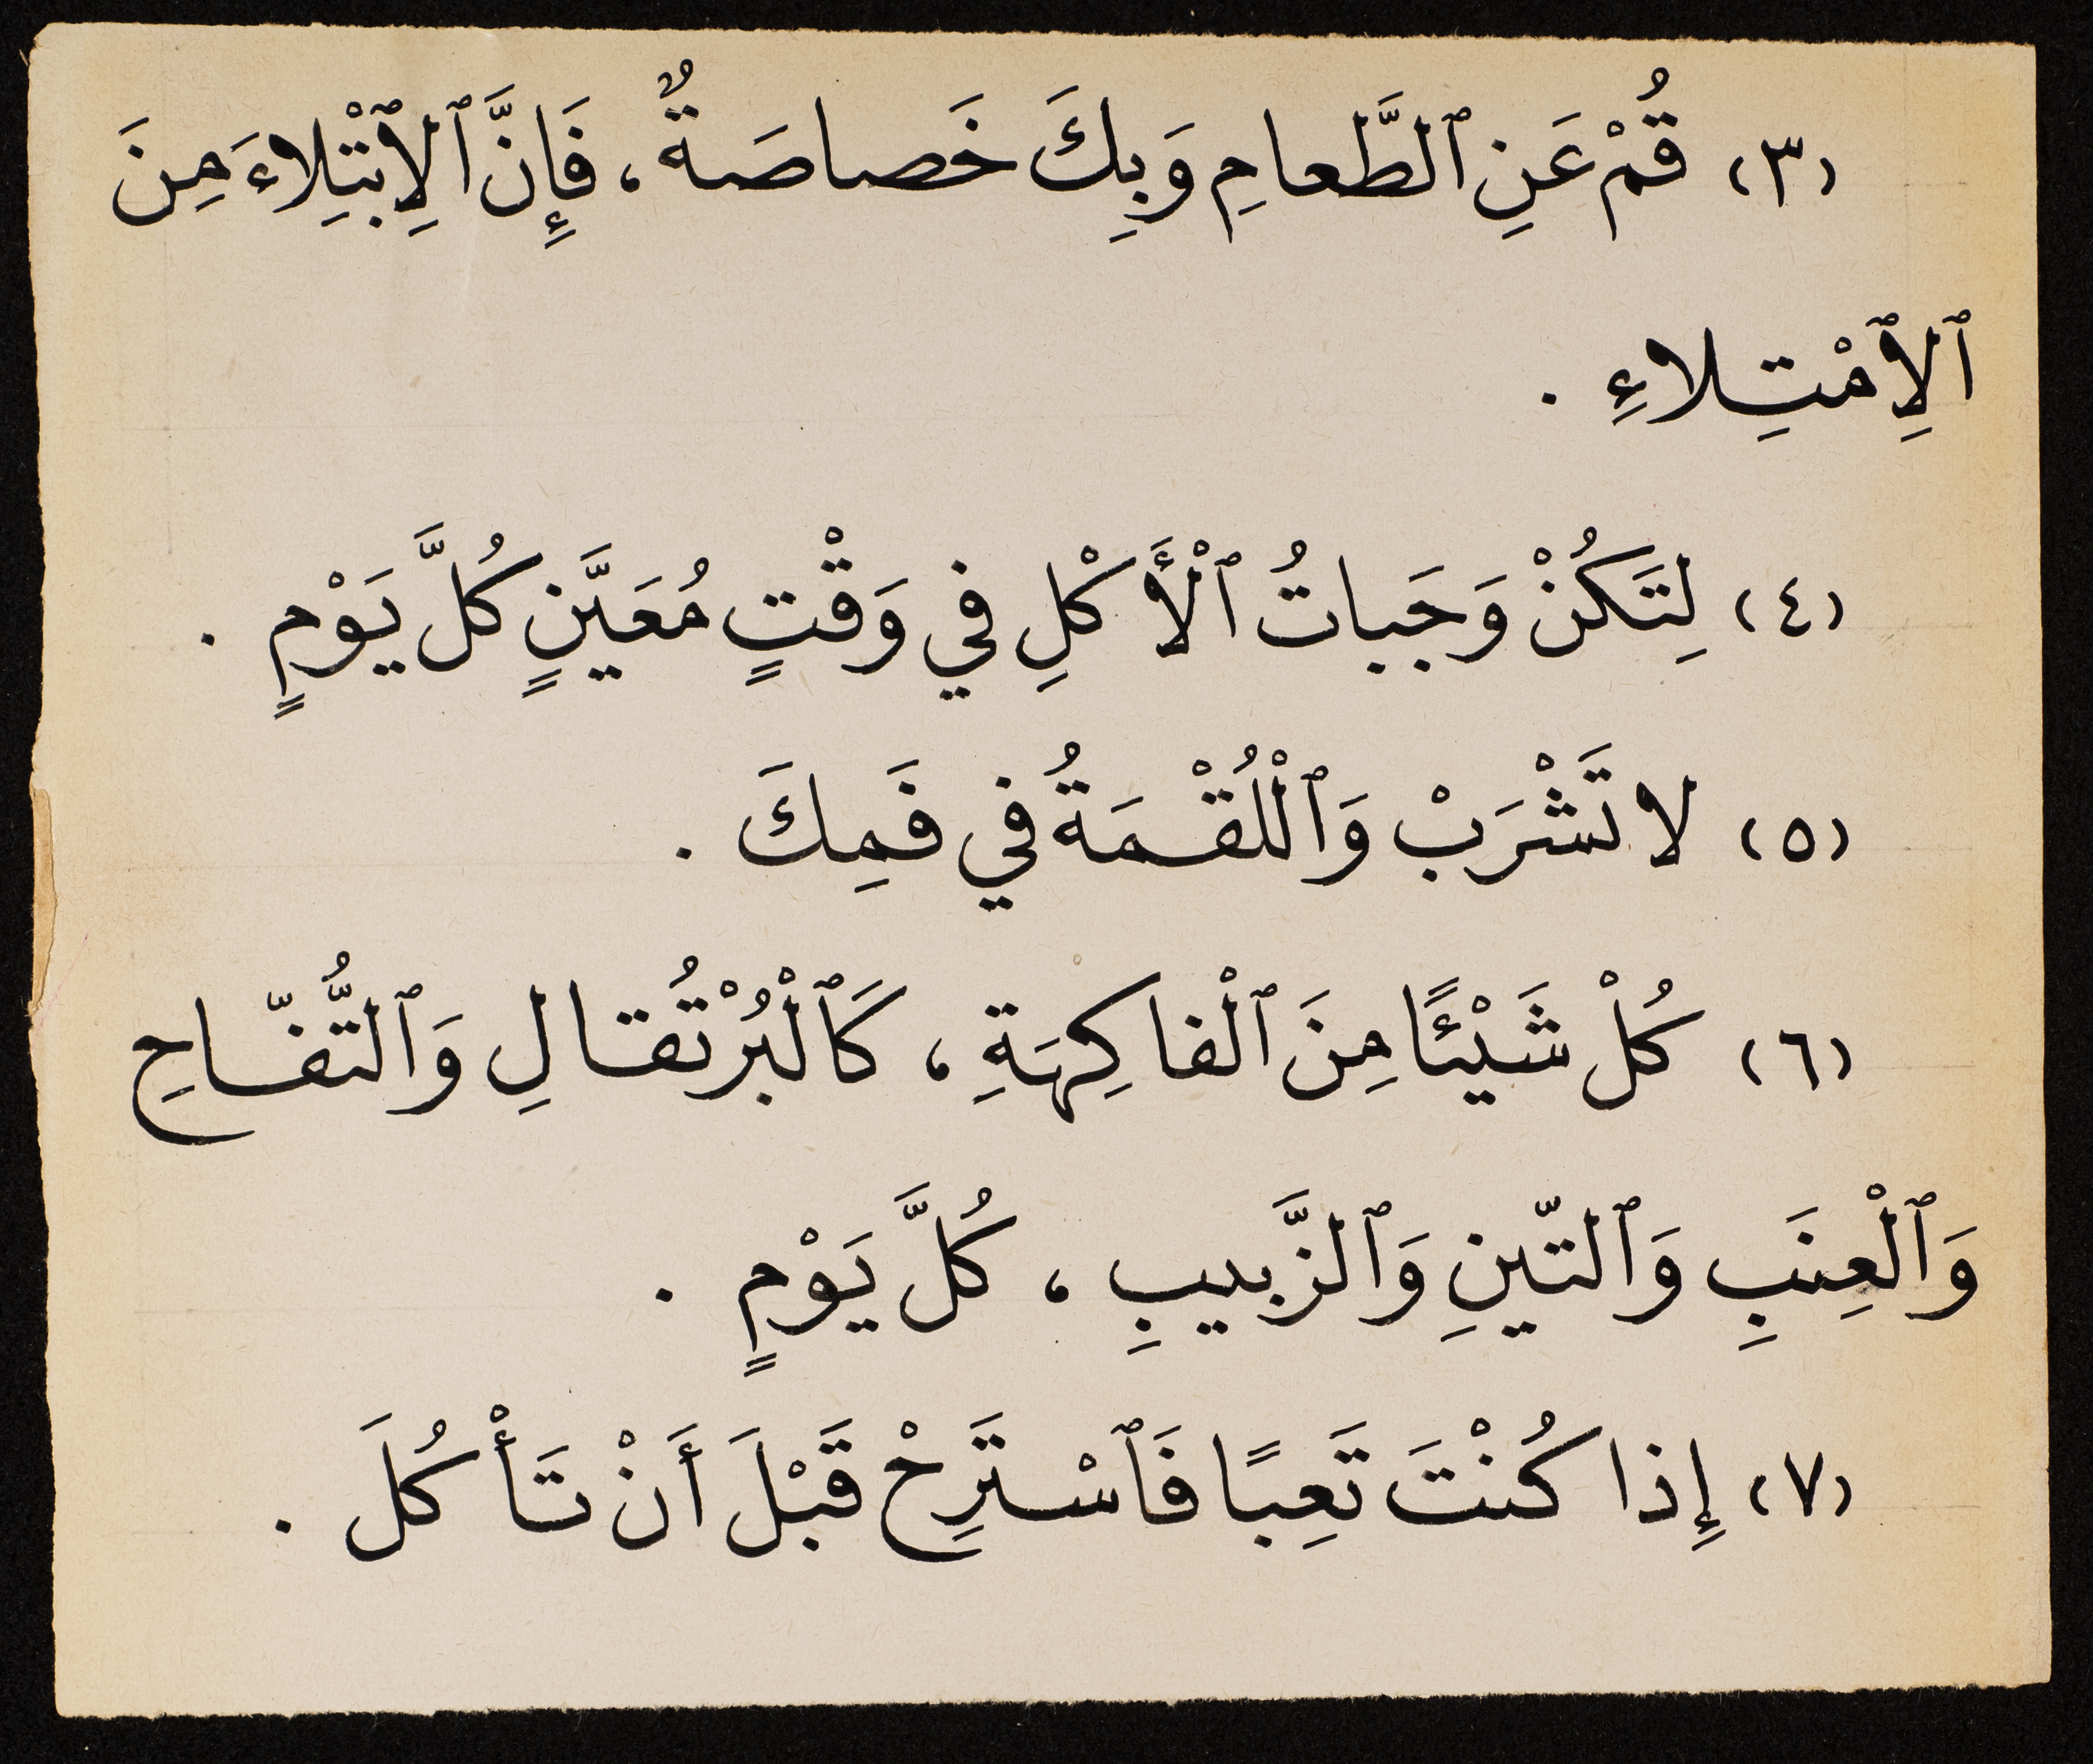 (٣) قُمْ عَنِ ٱلطَّعامِ وَبِكَ خَصاصَةٌ، فَإِنَّ ٱلِٱبْتِلاءَ مِنَ
ٱلِٱمْتِلاءِ .
(٤) لِتَكُنْ وَجَباتُ ٱلْأَكْلِ في وَقْتٍ مُعَيَّنٍ كُلَّ يَوْمٍ .
(٥) لا تَشْرَبْ وَٱلْلُقْمَةُ في فَمِكَ .
(٦) كُلْ شَيْئًا مِنَ ٱلْفاكِهَةِ، كَٱلْبُرْتُقالِ وَٱلتُّفّاحِ
وَٱلْعِنَبِ وَٱلتّينِ وَٱلزَّبيبِ، كُلَّ يَوْمٍ .
(٧) إِذا كُنْتَ تَعِبًا فَٱسْتَرِحْ قَبْلَ أَنْ تَأْكُلَ .